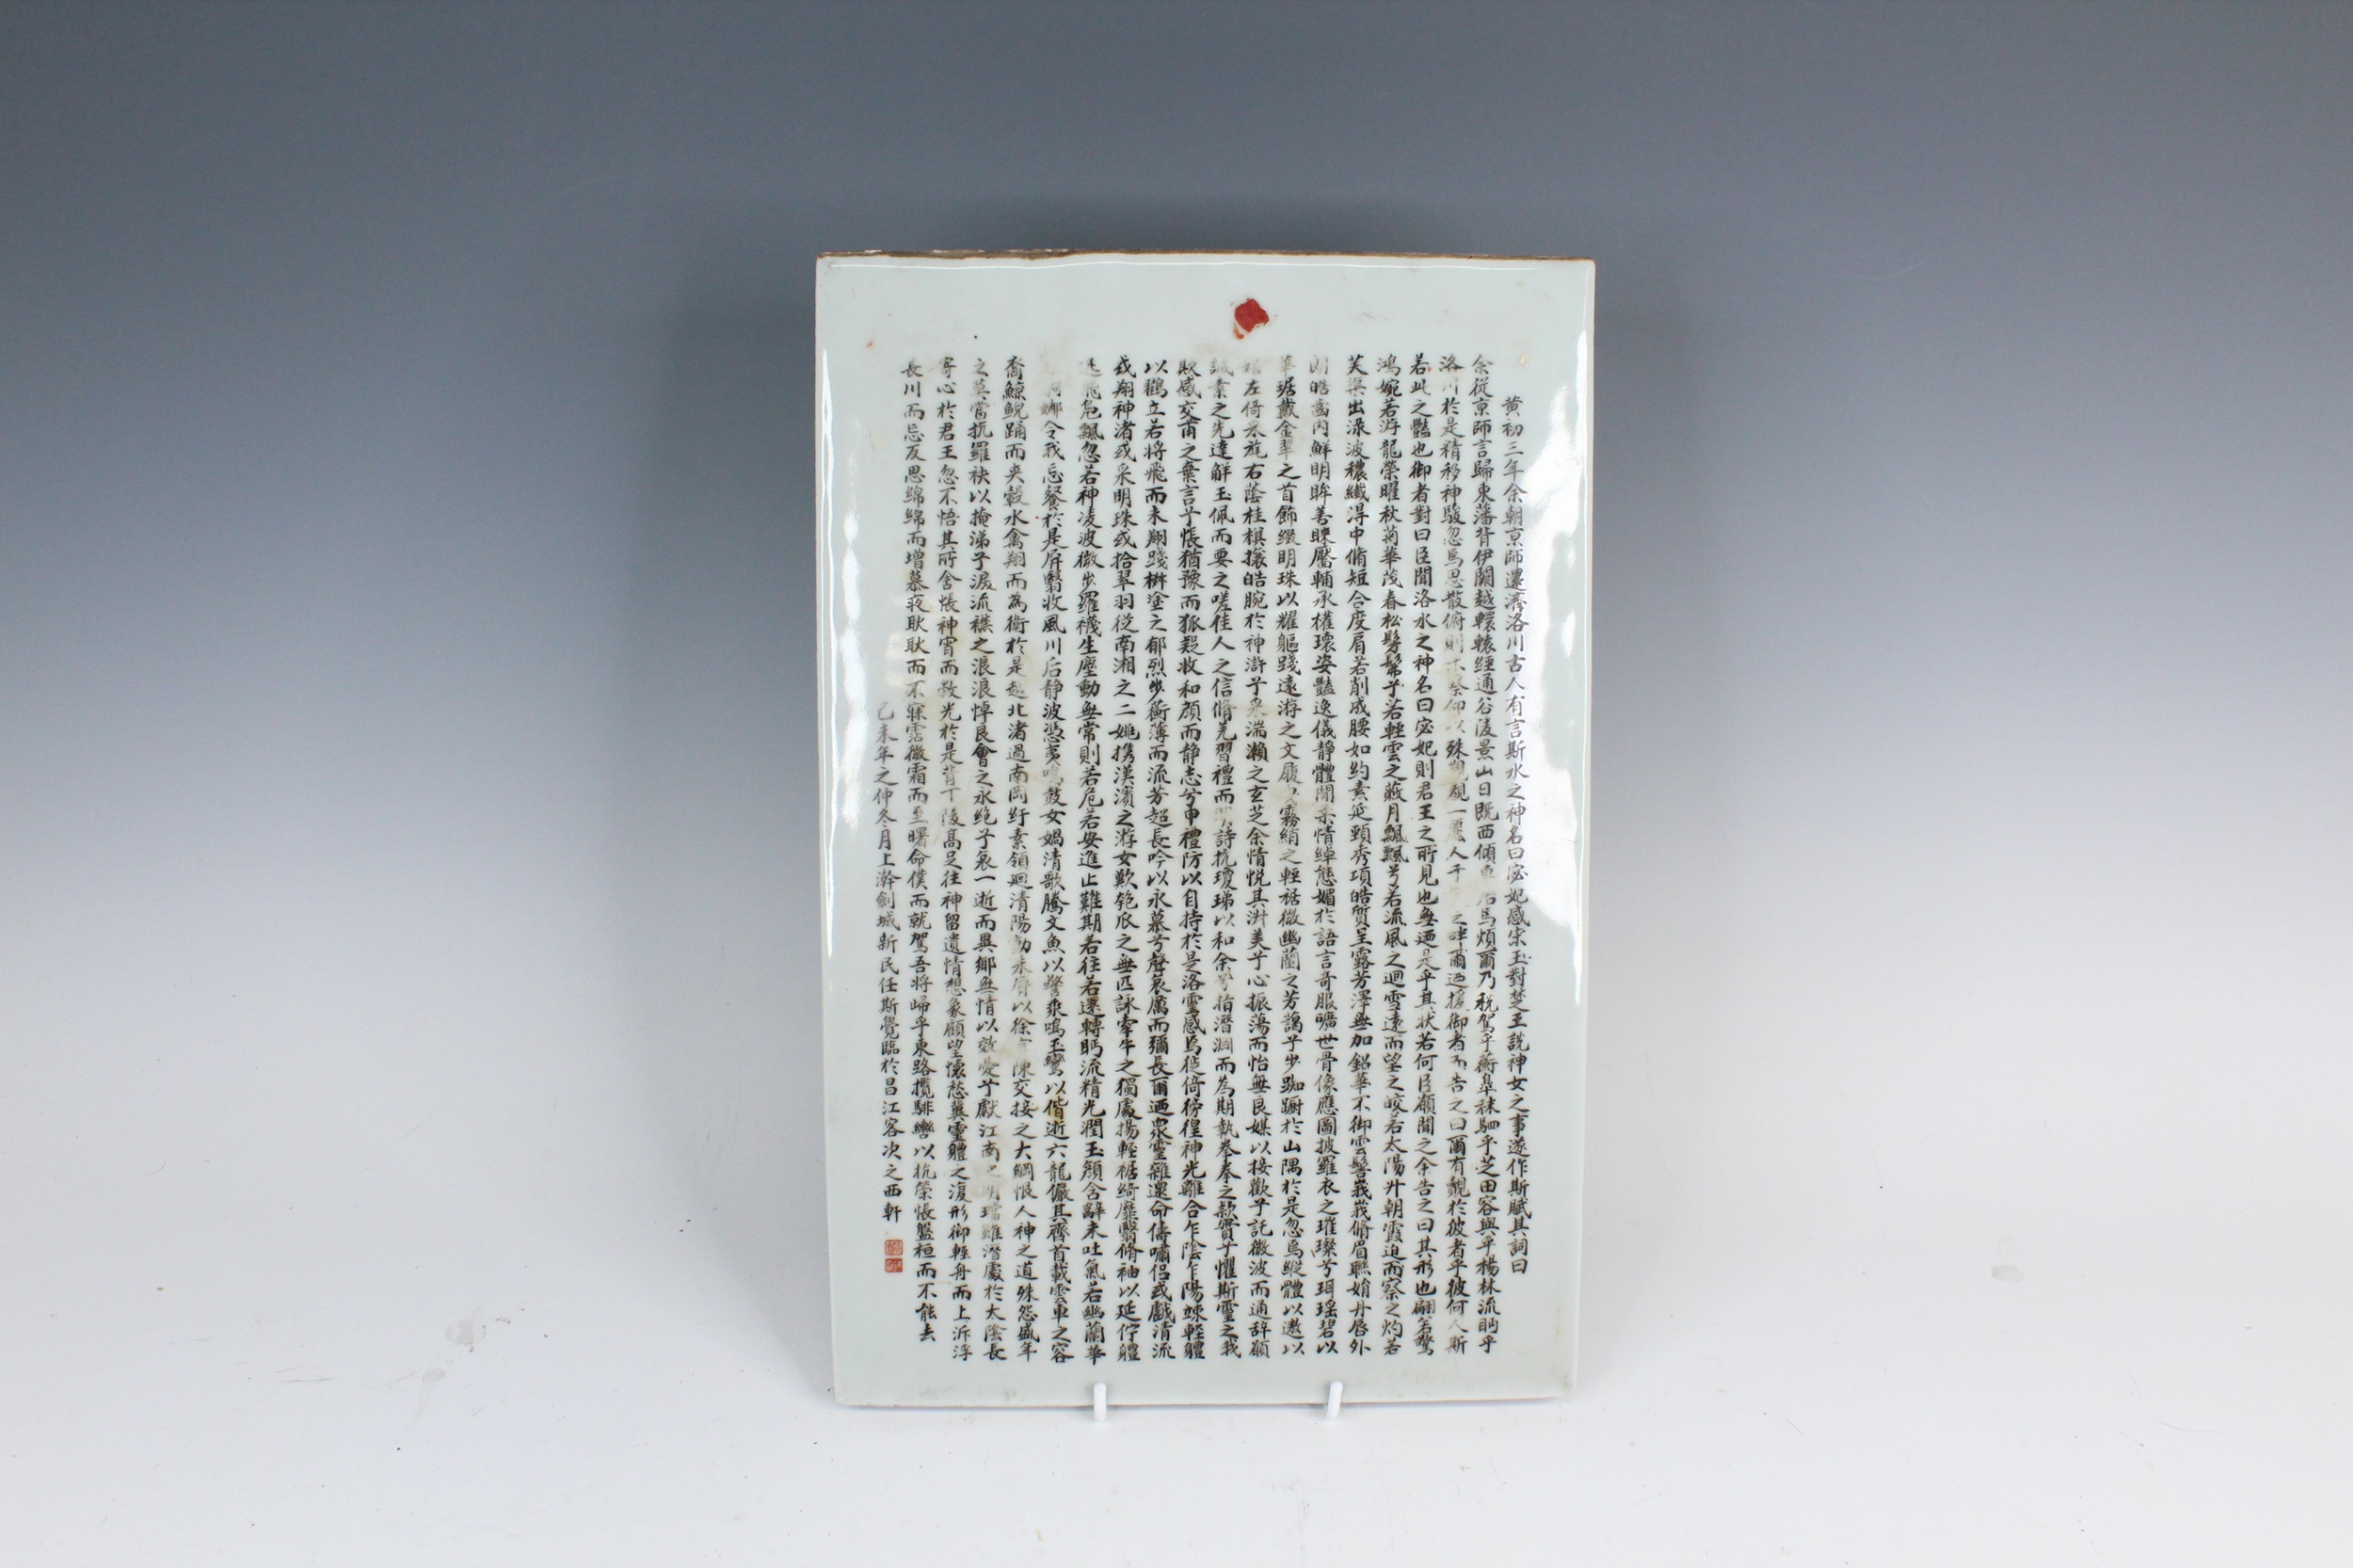 黄初三年余朝京師還濟洛川古人有言斯水之神名曰宓妃感宋玉對楚王説神女之事遂作斯賦其詞曰
余從京師言歸東藩背伊闕越轘轅經通谷陵景山日既西傾車殆馬煩爾乃税駕乎蘅臯秣駟乎芝田容與乎楊林流眄乎
洛川於是精移神駭忽焉思散俯則未察仰以殊觀覩一麗人于之畔爾迺援御者而告之曰爾有覿於彼者乎彼何人斯
若此之豔也御者對曰臣聞洛水之神名曰宓妃則君王之所見也無迺是乎其狀若何臣願聞之余告之曰其形也翩若驚
鴻婉若游龍榮曜秋菊華茂春松髣髴兮若輕雲之蔽月飄飄兮若流風之迴雪遠而望之皎若太陽升朝霞迫而察之灼若
芙蕖出渌波穠纖得中脩短合度肩若削成腰如約素延頸秀項皓質呈露芳澤無加鉛華不御雲髻峩峩脩眉聯娟丹唇外
朗皓齒内鮮明眸善睞靨輔承權瓌姿豔逸儀靜體閒柔情綽態媚於語言奇服曠世骨像應圖披羅衣之璀璨兮珥瑶碧以
華琚戴金翠之首飾綴明珠以耀軀踐遠游之文履霧綃之輕裾微幽蘭之芳藹兮步踟蹰於山隅於是忽焉縱體以遨以
嬉左倚采旄右蔭桂棋攘皓腕於神滸兮采湍瀨之玄芝余情悦其淑美兮心振蕩而怡無良媒以接歡兮託微波而通辞願
誠素之先達解玉佩而要之嗟佳人之信脩羌習禮而明詩抗瓊珶以和余兮指潛淵而為期執拳拳之款實兮懼斯靈之我
欺感交甫之棄言兮悵猶豫而狐疑收和顔而静志兮申禮防以自持於是洛靈感焉徙倚徬徨神光離合乍陰乍陽竦輕軆
以鶴立若将飛而未翔踐椒塗之郁烈步蘅薄而流芳超長吟以永慕兮聲哀厲而彌長爾迺衆靈雜遝命儔嘯侣或戲清流
或翔神渚或采明珠或拾翠羽從南湘之二姚携漢濱之游女歎匏瓜之無匹詠牽牛之獨處揚輕裾綺靡翳脩袖以延佇軆
迅飛凫飄忽若神凌波微步羅襪生塵動無常則若危若安進止難期若往若還轉眄流精光潤玉顔含辭未吐氣若幽蘭華
婀娜令我忘餐於是屏翳收風川后静波馮夷鳴鼓女媧清歌騰文魚以警乘鳴玉鸞以偕逝六龍儼其齊首載雲車之容
裔鯨鯢踊而夾轂水禽翔而為衛於是越北渚過南岡紆素領迴清陽動朱唇以徐言陳交接之大綱恨人神之道殊怨盛年
之莫當抗羅袂以掩涕兮淚流襟之浪浪悼良會之永絶兮哀一逝而異鄉無情以效愛兮獻江南之明璫雖潛處於太陰長
寄心於君王忽不悟其所舍悵神宵而蔽光於是背下陵高足往神留遺情想象顧望懷愁冀靈軆之復形御輕舟而上泝浮
長川而忘反思綿綿而增慕夜耿耿而不寐霑微霜而至曙命僕而就駕吾将歸乎東路攬騑轡以抗策悵盤桓而不能去
乙未年之仲冬月上澣劍城新民任斯覺臨於昌江客次之西軒